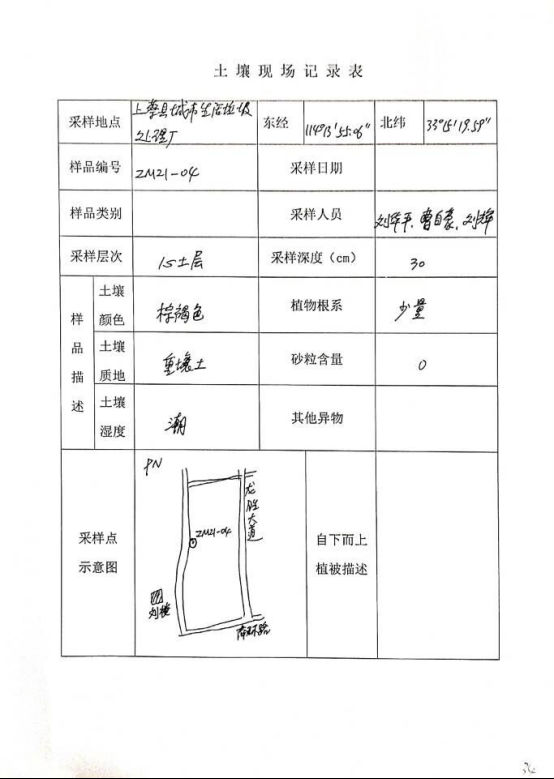 土壤现场记录表
采样地点 上蔡县城市生活垃圾处理厂 东经 114°13′55.06″ 北纬 33°15′19.59″
样品编号 ZM21-04 采样日期
样品类别 采样人员 曹自豪、刘辉
采样层次 土层 采样深度（cm） 30
样品描述
土壤颜色 棕褐色 植物根系 少量
土壤质地 重壤土 砂粒含量 0
土壤湿度 潮 其他异物
采样点示意图 自下而上植被描述
N
龙胜大道
ZM21-04
刘楼
南环路